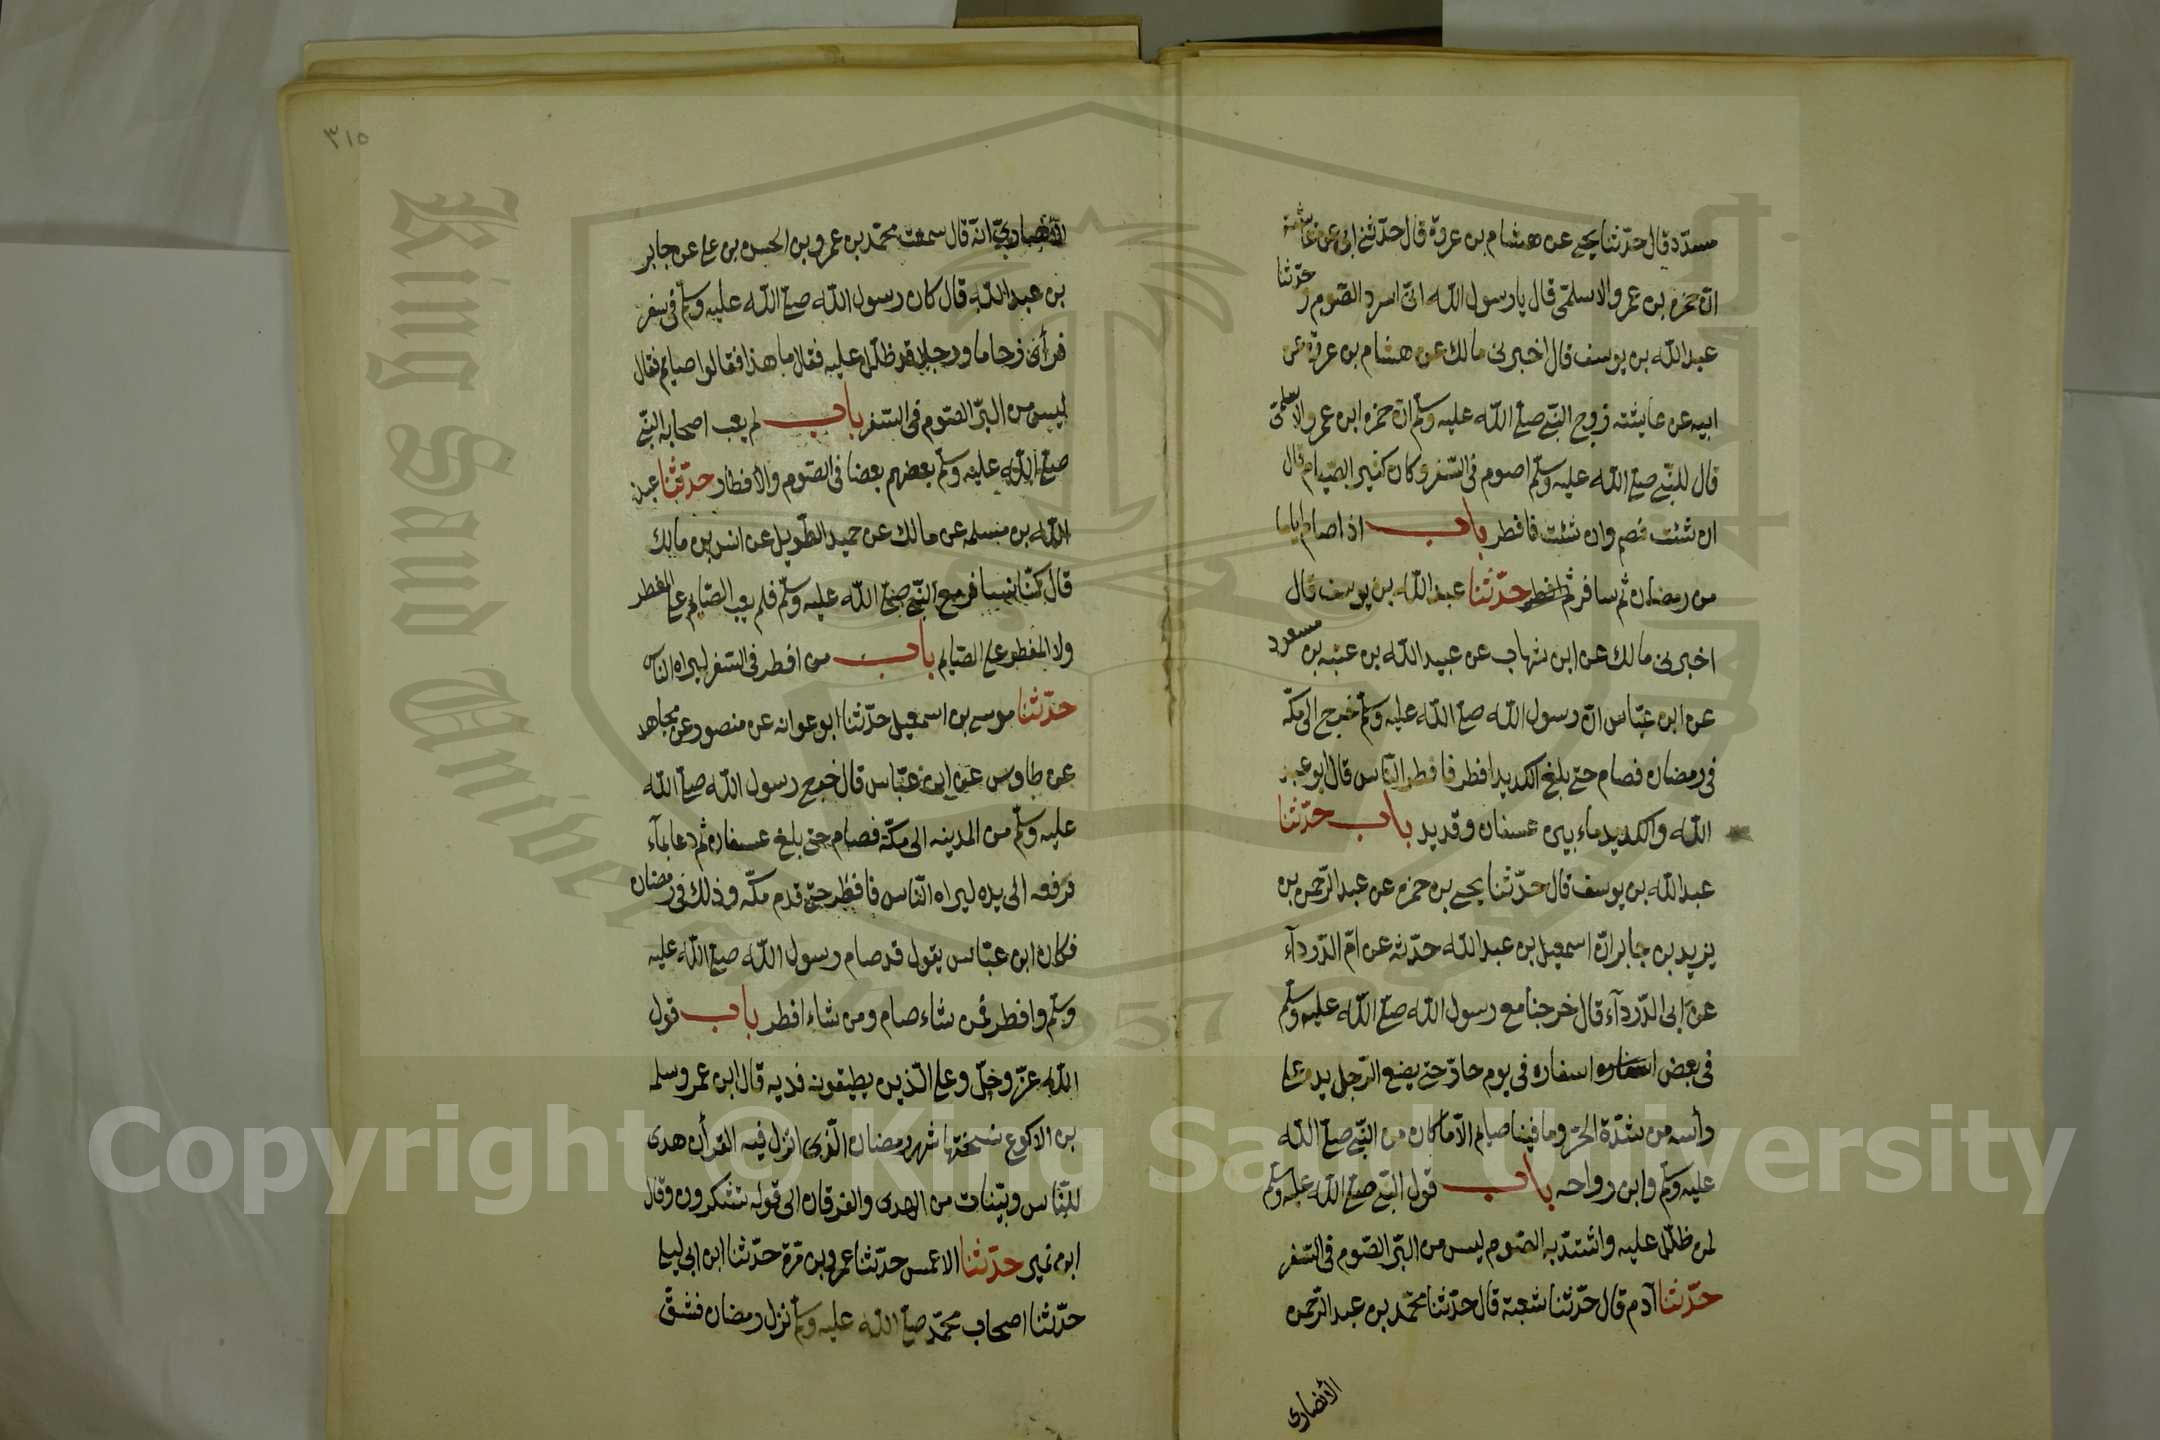 مسدد قال حدّثنا يحيى عن هشام بن عروة قال حدّثني ابى عن عائشة
انّ حمزه بن عمرو الاسلمّى قال يا رسول الله انّى اسرد الصّوم ح حدّثنا
عبد الله بن يوسف قال اخبرنى مالك عن هشام بن عروة عن
ابيه عن عايشته زوج النّبى صلى الله عليه وسلّم انّ حمزه ابن عمرو الاسلمّى
قال للنّبى صلى الله عليه وسلّم اصوم فى السّفر وكان كثير الصّيام قال
ان شئت فصم وان شئت فافطر باب اذا صام اياما
من رمضان ثم سافر ثم افطر حدّثنا عبد الله بن يوسف قال
اخبرنى مالك عن ابن شهاب عن عبيد الله بن عتبه بن مسعود
عن ابن عبّاس انّ رسول الله صلى الله عليه وسلّم خرج الى مكّة
فى رمضان فصام حتى بلغ الكديد افطر فافطر النّاس قال ابو عبد
الله والكديد ماء بين عسفان وقديد باب حدّثنا
عبد الله بن يوسف قال حدّثنا يحيى بن حمزه عن عبد الرّحمن بن
يزيد بن جابر انّ اسمعيل بن عبد الله حدّثه عن امّ الدّرداء
عن ابى الدّرداء قال خرجنا مع رسول الله صلى الله عليه وسلّم
فى بعض اسفاره فى يوم حارّ حتى يضع الرّجل يده على
رأسه من شدّة الحرّ وما فينا صيام الاّ ما كان من النّبى صلى الله
عليه وسلّم وابن رواحه باب قول النّبى صلى الله عليه وسلّم
لمن ظلّل عليه واشتدّ به الصّوم ليس من البرّ الصّوم فى السّفر
حدّثنا آدم قال حدّثنا شعبة قال حدّثنا محمّد بن عبد الرّحمن
الانصارى
٣١٥
الانصارىّ انّه قال سمعت محمّد بن عمرو بن الحسن بن على عن جابر
بن عبد الله قال كان رسول الله صلى الله عليه وسلّم فى سفر
فرأى زحاما ورجلا قد ظلّل عليه فقال ما هذا فقالوا صايم فقال
ليس من البرّ الصّوم فى السّفر باب لم يعب اصحاب النّبى
صلى الله عليه وسلّم بعضهم بعضا فى الصّوم والافطار حدّثنا عبد
الله بن مسلمه عن مالك عن حميد الطّويل عن انس بن مالك
قال كنّا نسافر مع النّبى صلى الله عليه وسلّم فلم يعب الصّايم على المفطر
ولا المفطر على الصّايم باب من افطر فى السّفر ليراه النّاس
حدّثنا موسى بن اسمعيل حدّثنا ابو عوانه عن منصور عن مجاهد
عن طاوس عن ابن عبّاس قال خرج رسول الله صلى الله
عليه وسلّم من المدينه الى مكّة فصام حتى بلغ عسفان ثم دعا بماء
فرفعه الى يده ليراه النّاس فافطر حتى قدم مكّه وذلك فى رمضان
فكان ابن عبّاس يقول قد صام رسول الله صلى الله عليه
وسلّم وافطر فمن شاء صام ومن شاء افطر باب قول
الله عزّ وجلّ وعلى الّذين يطيقونه فديه قال ابن عمر وسلمه
بن الاكوع نسختها شهر رمضان الّذى انزل فيه القرأن هدى
للنّاس وبيّنات من الهدى والفرقان الى قوله تشكرون وقال
ابن نمير حدّثنا الاعمش حدّثنا عمرو بن مّرة حدّثنا ابن ابى ليلى
حدّثنا اصحاب محمّد صلى الله عليه وسلّم نزل رمضان فشقّ
King Saud University
1957
Copyright © King Saud University